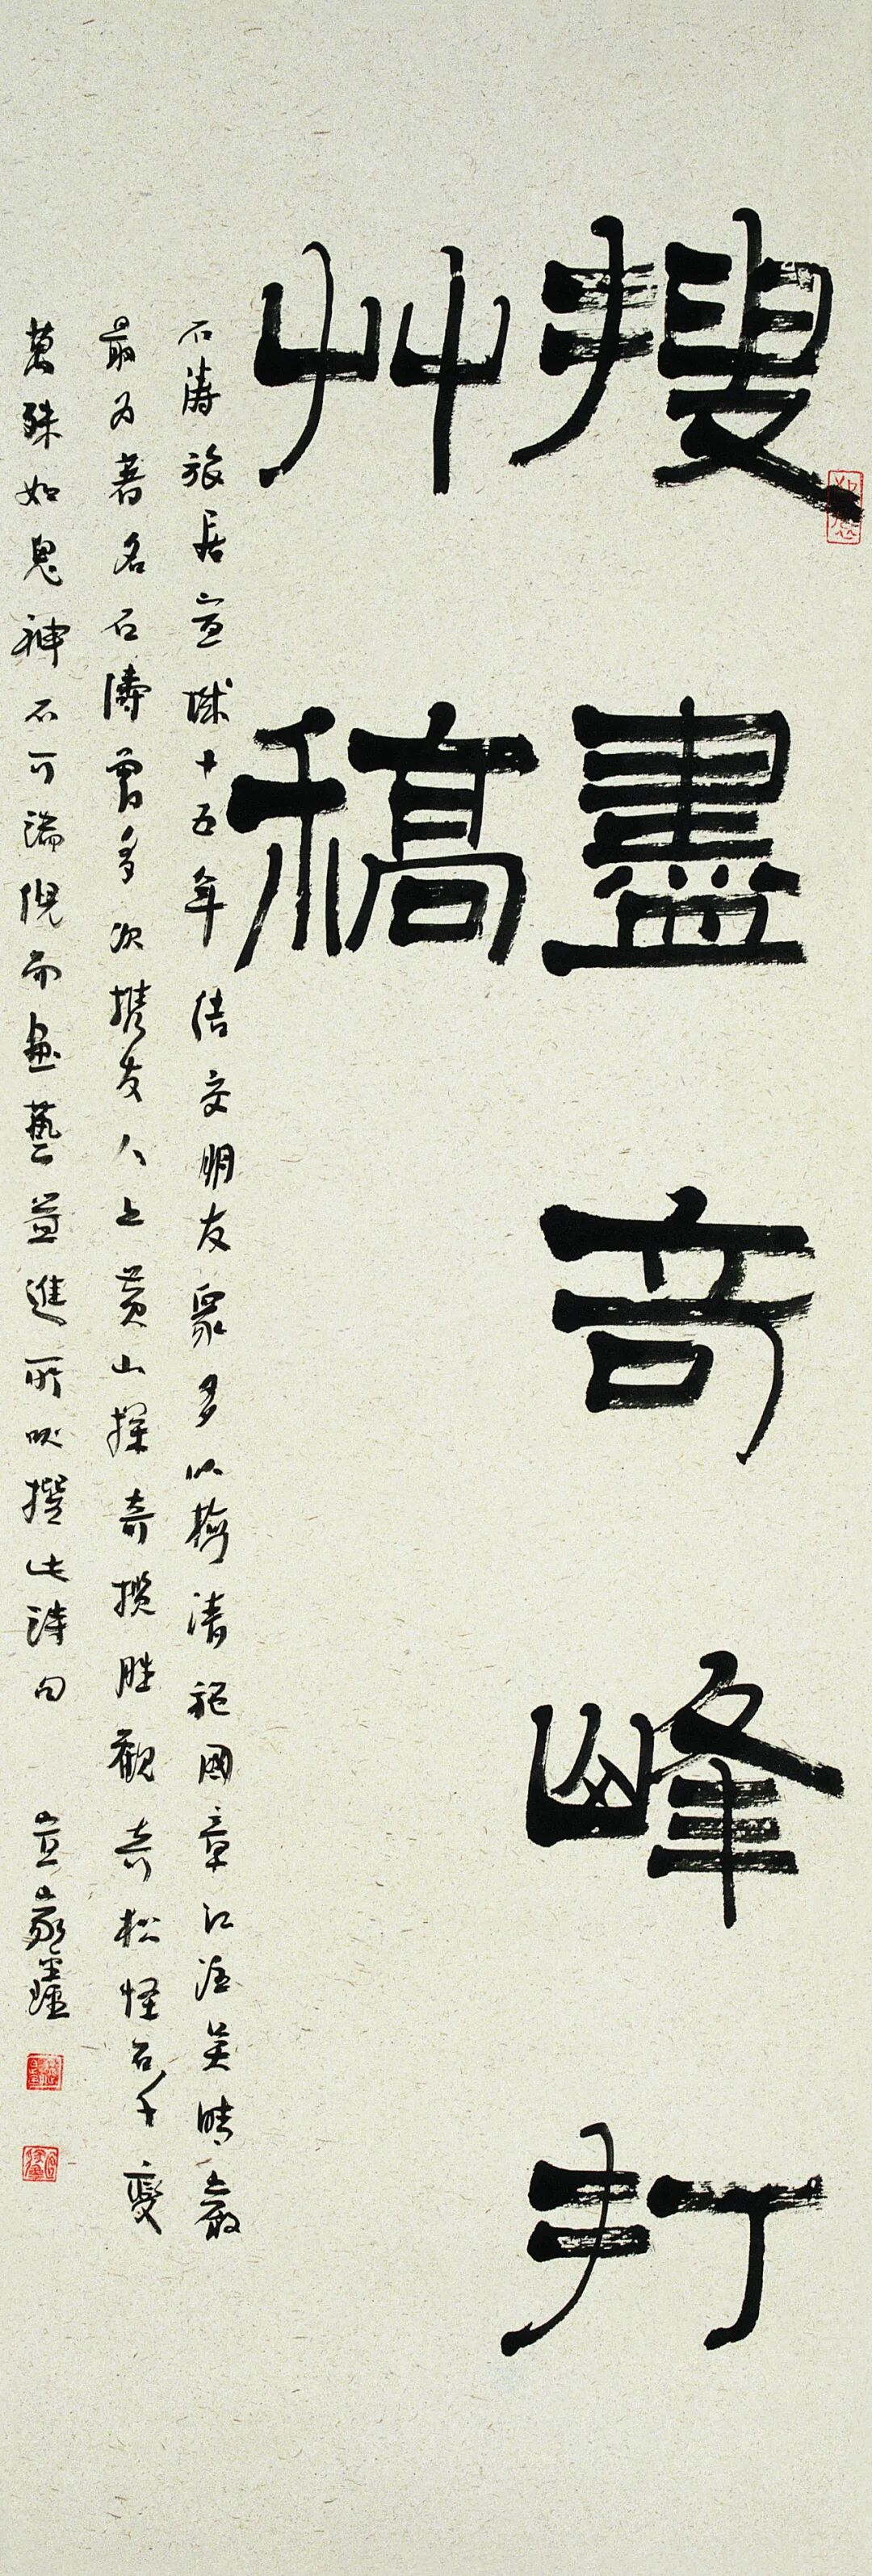 搜盡奇峰打
艸稿
石濤旅居宣城十五年結交朋友眾多以梅清祖國章江注吳晴巖
最为著名石濤曾多次攜友人上黄山探奇攬胜觀奇松怪石千變
萬殊如鬼神不可端倪而画藝益進所以撰此詩句